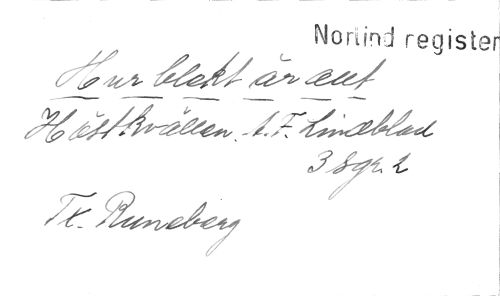 Norlind register
Hur blekt är allt
Höstkvällen. A.F. Lindblad
3 sgr. 2
Tx. Runeberg